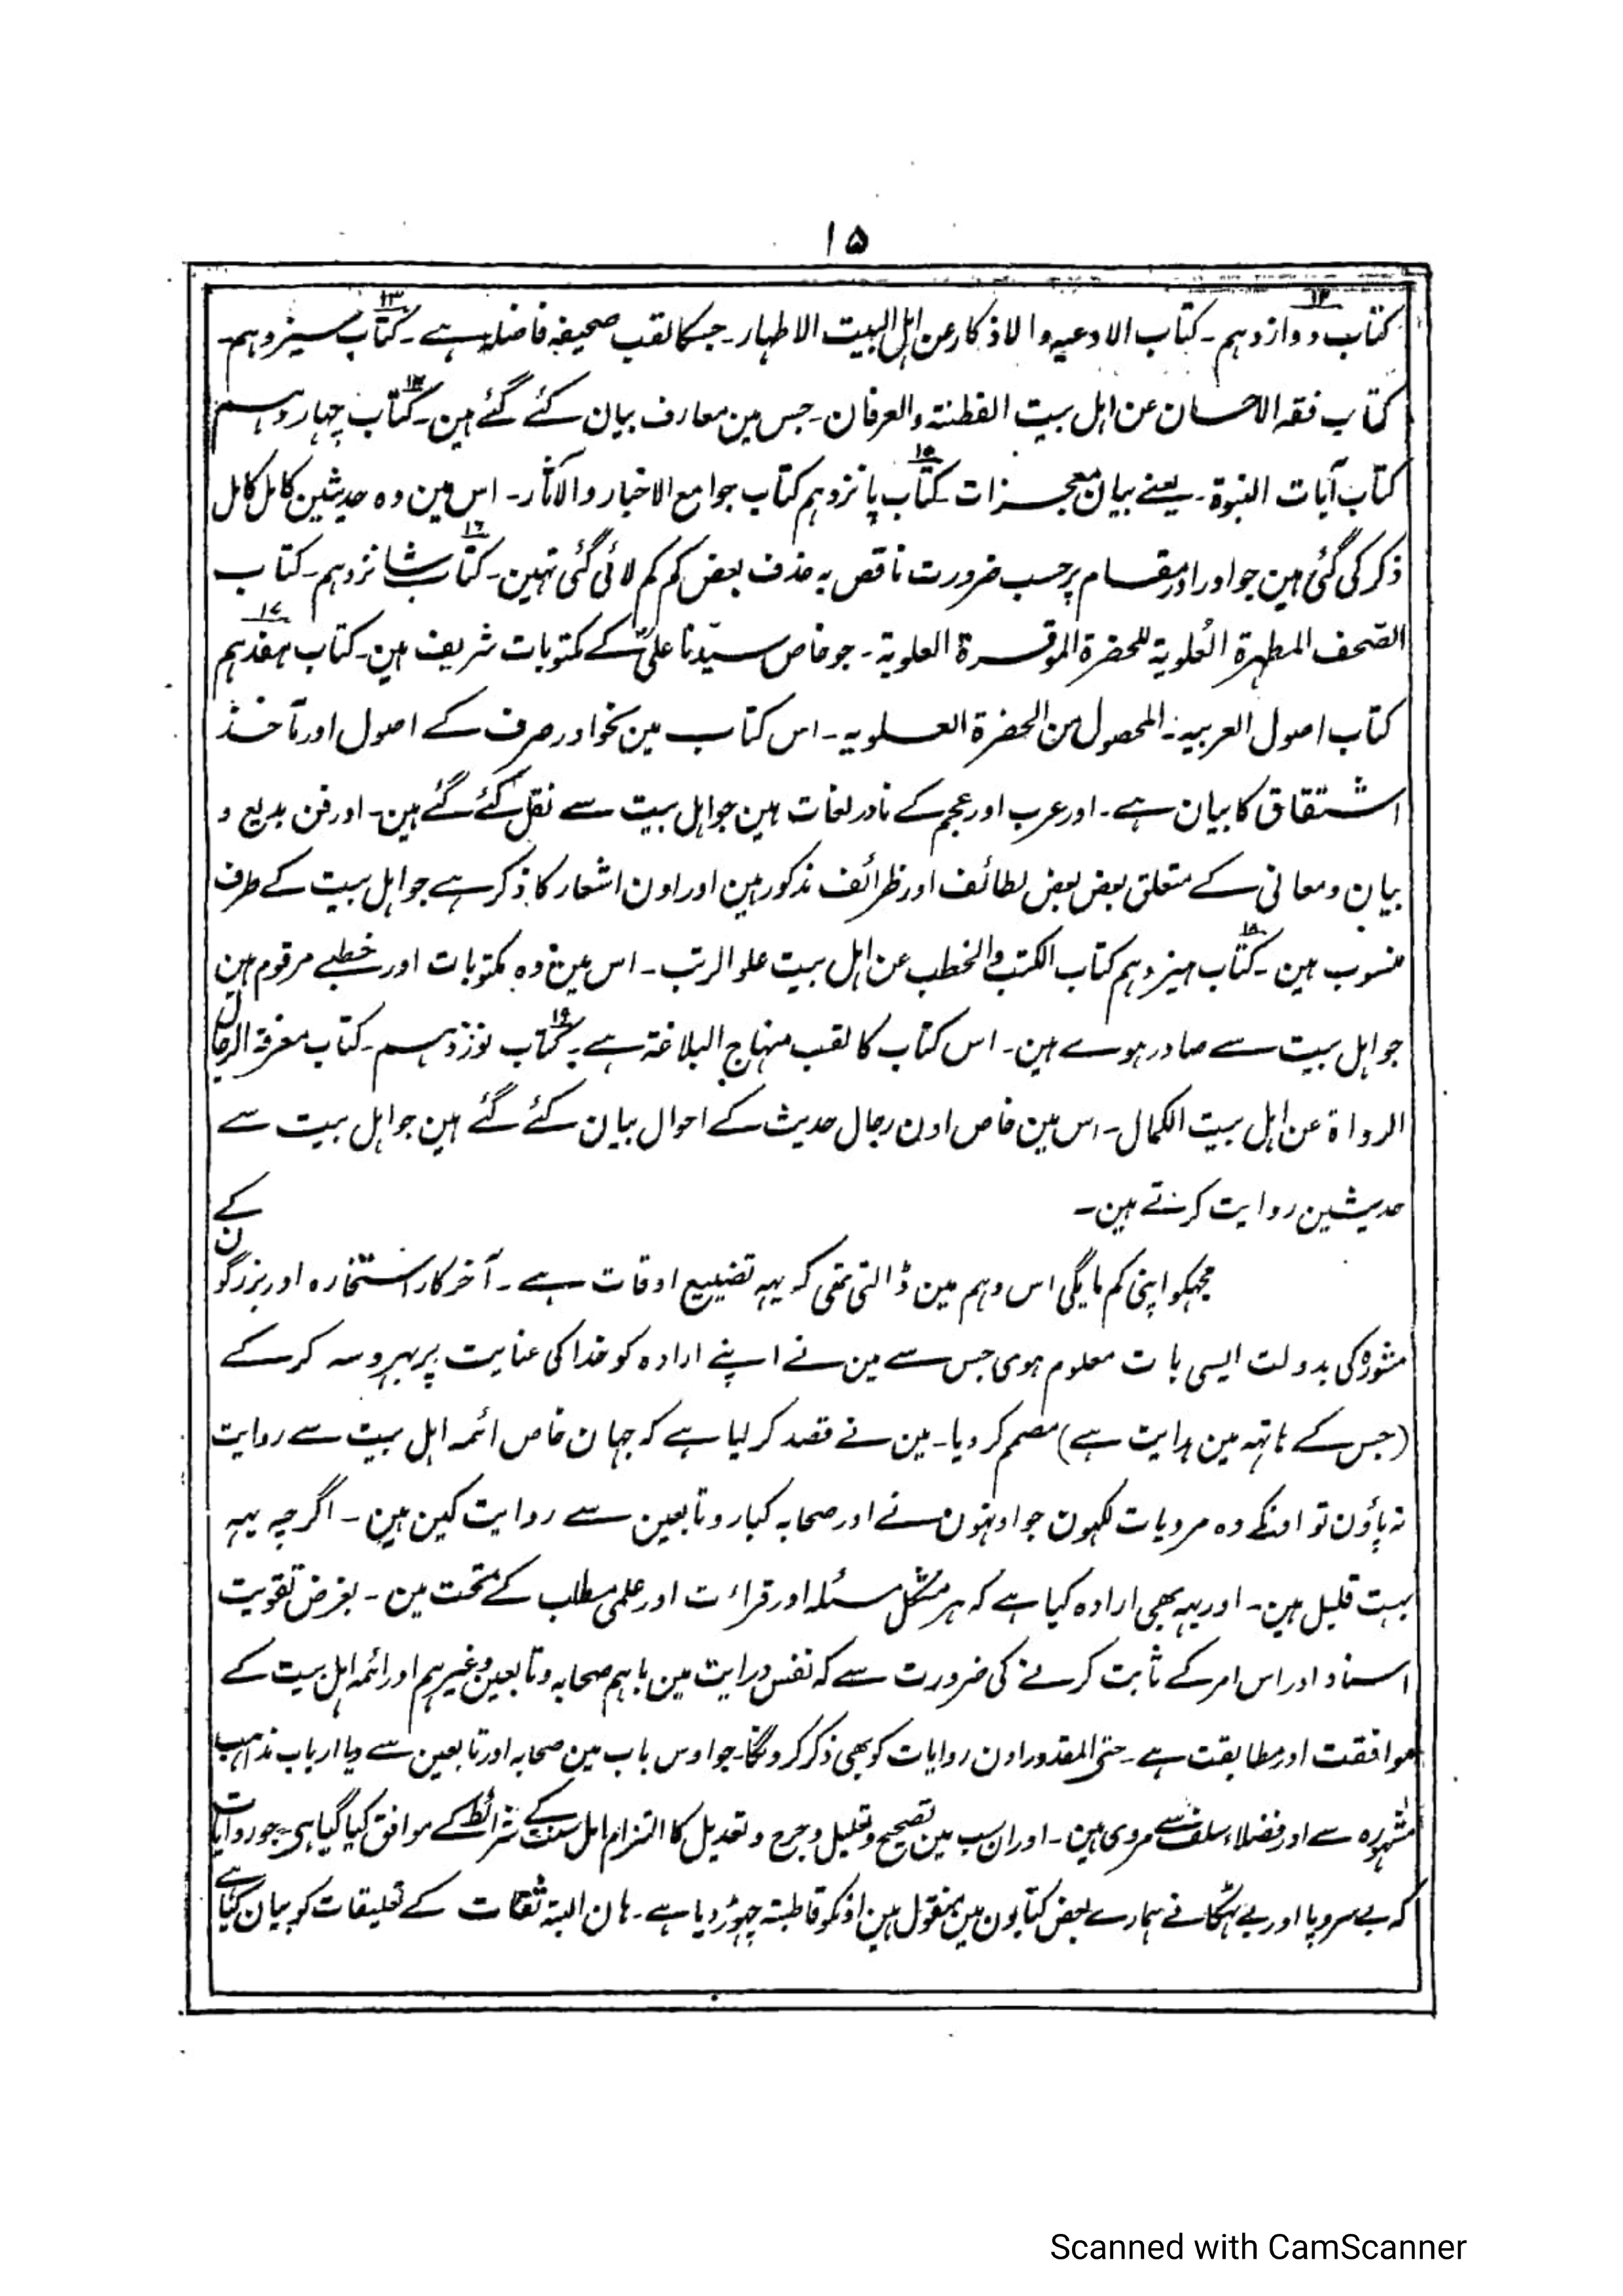 ۱۵
۱۲
کتاب دوازدہم۔ کتاب الادعیہ والاذکار عن اہل البیت الاطہار۔ جسکا لقب صحیفہ فاضلہ ہے۔ کتاب سیزدہم۔
۱۳
کتاب فقہ الاحسان عن اہل بیت الفطنۃ والعرفان۔ جس مین معارف بیان کئے گئے ہین۔ کتاب چہاردہم
۱۴
کتاب آیات النبوۃ۔ یعنے بیان معجزات کتاب پانزدہم کتاب جوامع الاخبار والآثار۔ اس مین وہ حدیثین کامل کامل
۱۵
ذکر کی گئی ہین جو اور اور مقام پر حسب ضرورت ناقص بہ حذف بعض کم کم لائی گئی تہین۔ کتاب شانزدہم۔ کتاب
۱۶
الصحف المطہرۃ العُلویۃ للحضرۃ الموقرۃ العلویۃ۔ جو خاص سیدنا علیؓ کے مکتوبات شریف ہین۔ کتاب ہفدہم
۱۷
کتاب اصول العربیہ۔ المحصول من الحضرۃ العلویہ۔ اس کتاب مین نحو اور صرف کے اصول اور مآخذ
اشتقاق کا بیان ہے۔ اور عرب اور عجم کے نادر لغات ہین جو اہل بیت سے نقل کئے گئے ہین۔ اور فن بدیع و
بیان ومعانی کے متعلق بعض بعض لطائف اور ظرائف مذکور ہین اور اون اشعار کا ذکر ہے جو اہل بیت کے طرف
منسوب ہین۔ کتاب ہیزدہم کتاب الکتب والخطب عن اہل بیت علو الرتب۔ اس مین وہ مکتوبات اور خطبے مرقوم ہین
۱۸
جو اہل بیت سے صادر ہوے ہین۔ اس کتاب کا لقب منہاج البلاغۃ ہے۔ کتاب نوزدہم۔ کتاب معرفۃ الرجال
۱۹
الرواۃ عن اہل بیت الکمال۔ اس مین خاص اون رجال حدیث کے احوال بیان کئے گئے ہین جو اہل بیت سے
حدیثین روایت کرتے ہین۔
مجہکو اپنی کم مایگی اس وہم مین ڈالتی تھی کہ یہہ تضییع اوقات ہے۔ آخر کار استخارہ اور بزرگون کے
مشورہ کی بدولت ایسی بات معلوم ہوی جس سے مین نے اپنے ارادہ کو خدا کی عنایت پر بہروسہ کرکے
(جس کے ہاتہہ مین ہدایت ہے) مصمم کر دیا۔ مین نے قصد کر لیا ہے کہ جہان خاص ائمہ اہل بیت سے روایت
نہ پاؤن تو اونکے وہ مرویات لکہون جو اونہون نے اور صحابہ کبار وتابعین سے روایت کین ہین۔ اگرچہ یہہ
بہت قلیل ہین۔ اور یہہ بھی ارادہ کیا ہے کہ ہر مشکل مسئلہ اور قراءت اور علمی مطلب کے تحت مین۔ بغرض تقویت
اسناد اور اس امر کے ثابت کرنے کی ضرورت سے کہ نفس درایت مین باہم صحابہ وتابعین وغیرہم اور ائمہ اہل بیت کے
موافقت اور مطابقت ہے۔ حتی المقدور اون روایات کو بھی ذکر کرونگا۔ جو اوس باب مین صحابہ اور تابعین سے ویا ارباب مذاہب
مشہورہ سے اور فضلاء سلف سے مروی ہین۔ اور ان سب مین تصحیح وتعلیل وجرح وتعدیل کا التزام اہل سنت کے شرائط کے موافق کیا گیا ہی۔ جو روایات
کہ بے سروپا اور بے ٹہکانے ہمارے بعض کتابون مین منقول ہین اونکو قاطبتہ چہوڑ دیا ہے۔ ہان البتہ ثقات کے تعلیقات کو بیان کیا ہے
Scanned with CamScanner